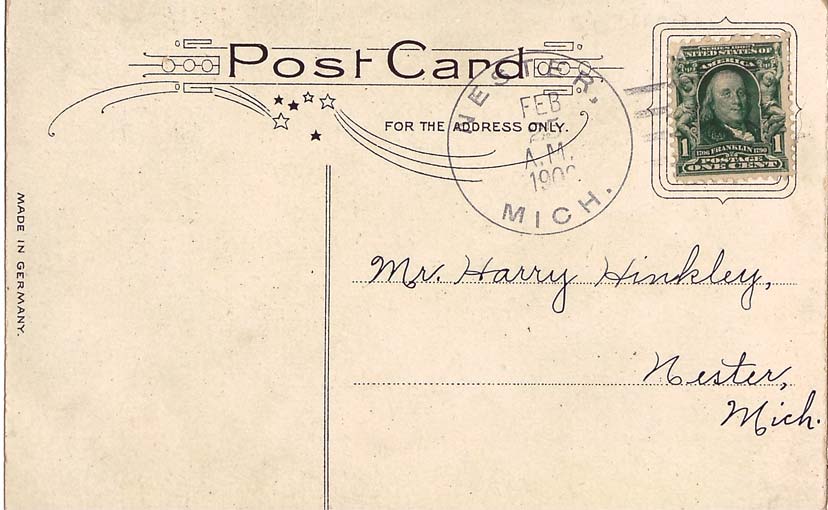 Post Card
FOR THE ADDRESS ONLY.
NESTER,
FEB
25
A.M.
MICH.
SERIES 1902
UNITED STATES OF
AMERICA
1 1706 FRANKLIN 1790 1
POSTAGE
ONE CENT
MADE IN GERMANY.
Mr. Harry Hinkley,
Nester,
Mich.